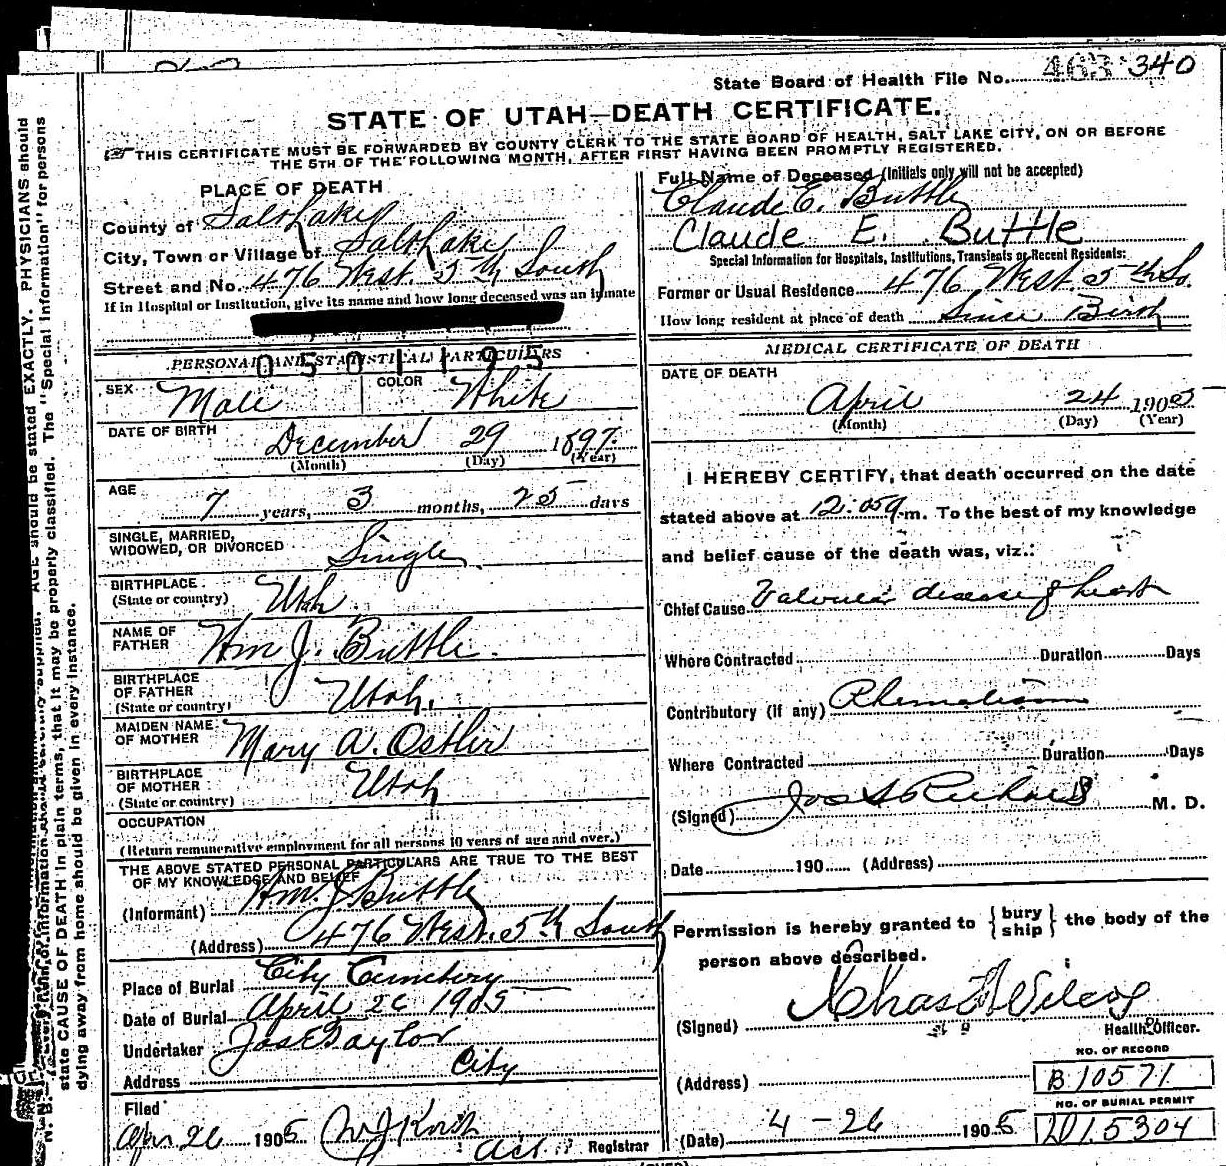 State Board of Health File No. 463 340
STATE OF UTAH—DEATH CERTIFICATE.
THIS CERTIFICATE MUST BE FORWARDED BY COUNTY CLERK TO THE STATE BOARD OF HEALTH, SALT LAKE CITY, ON OR BEFORE
THE 5TH OF THE FOLLOWING MONTH, AFTER FIRST HAVING BEEN PROMPTLY REGISTERED.
PLACE OF DEATH
County of Salt Lake
City, Town or Village of Salt Lake
Street and No. 476 West 5th South
If in Hospital or Institution, give its name and how long deceased was an inmate
Full Name of Deceased (Initials only will not be accepted)
Claude E. Buttle
Claude E. Buttle
Special Information for Hospitals, Institutions, Transients or Recent Residents:
Former or Usual Residence 476 West 5th So.
How long resident at place of death Since Birth
PERSONAL AND STATISTICAL PARTICULARS
0501195
SEX Male COLOR White
DATE OF BIRTH December 29 1897
(Month) (Day) (Year)
AGE 7 years, 3 months, 25 days
SINGLE, MARRIED,
WIDOWED, OR DIVORCED Single
BIRTHPLACE
(State or country) Utah
NAME OF
FATHER Wm J. Buttle.
BIRTHPLACE
OF FATHER
(State or country) Utah.
MAIDEN NAME
OF MOTHER Mary A. Ostler
BIRTHPLACE
OF MOTHER
(State or country) Utah
OCCUPATION
(Return remunerative employment for all persons 10 years of age and over.)
THE ABOVE STATED PERSONAL PARTICULARS ARE TRUE TO THE BEST
OF MY KNOWLEDGE AND BELIEF
(Informant) Wm. J Buttle
(Address) 476 West. 5th South
Place of Burial City Cemetery
Date of Burial April 26 1905
Undertaker Jos E Taylor
Address City
Filed
Apr 26 1905
Act. Registrar
MEDICAL CERTIFICATE OF DEATH
DATE OF DEATH
April 24 1905
(Month) (Day) (Year)
I HEREBY CERTIFY, that death occurred on the date
stated above at 12.05 a.m. To the best of my knowledge
and belief cause of the death was, viz.:
Chief Cause Valvular disease of heart
Where Contracted Duration Days
Contributory (if any) Rhematism
Where Contracted Duration Days
(Signed) Jos S Richards M. D.
Date 190 (Address)
Permission is hereby granted to {bury ship} the body of the
person above described.
(Signed) Chas F Wilcox
Health Officer.
NO. OF RECORD
(Address) B 10571
NO. OF BURIAL PERMIT
(Date) 4-26 1905 2015304
PHYSICIANS should
state CAUSE OF DEATH in plain terms, that it may be properly classified. The "Special Information" for persons
dying away from home should be given in every instance.
AGE should be stated EXACTLY.